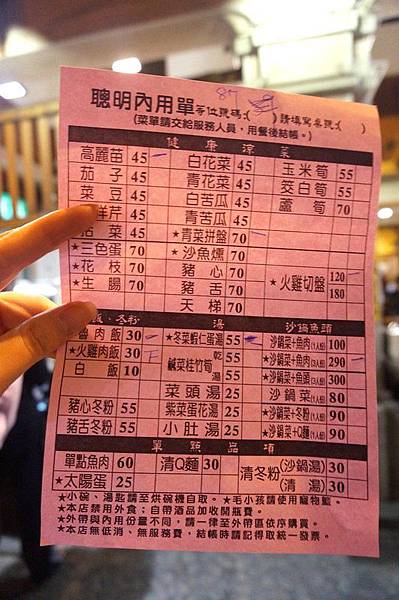 聰明內用單 等位號碼:( 87 ) 請填寫桌號:( )
(菜單請交給服務人員,用餐後結帳。)
健康涼菜
高麗苗 45 白花菜 45 玉米筍 55
茄子 45 青花菜 45 茭白筍 55
菜豆 45 白苦瓜 45 蘆筍 70
洋芹 45 青苦瓜 45
菜 45 ★青菜拼盤 70
★三色蛋 70 ★沙魚燻 70
★花枝 70 豬心 70 ★火雞切盤 120 180
★生腸 70 豬舌 70
天梯 70
飯、冬粉 湯 沙鍋魚頭
魯肉飯 30 ★冬菜蝦仁蛋湯 55 沙鍋菜+魚肉(1人份) 100
★火雞肉飯 30 鹹菜桂竹筍 乾 湯 55 55 ★沙鍋菜+魚肉(3人份) 290
白飯 10 ★沙鍋菜+魚頭(3人份) 300
菜頭湯 25 沙鍋菜(1人份) 80
豬心冬粉 55 紫菜蛋花湯 25 ★沙鍋菜+冬粉(1人份) 90
豬舌冬粉 55 小肚湯 25 ★沙鍋菜+Q麵(1人份) 90
單點品項
單點魚肉 60 清Q麵 30 清冬粉 (沙鍋湯) 30
★太陽蛋 25 (清湯) 30
★小碗、湯匙請至烘碗機自取。★毛小孩請使用寵物籃。
★本店禁用外食;自帶酒品加收開瓶費。
★外帶與內用份量不同,請一律至外帶區依序購買。
★本店無低消、無服務費,結帳時請記得取統一發票。